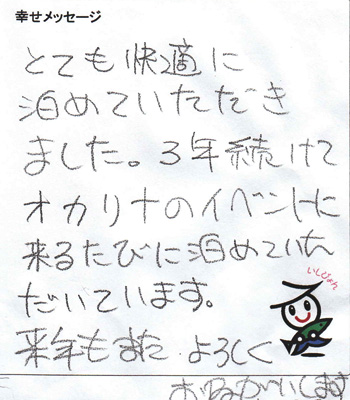 幸せメッセージ
とても快適に
泊めていただき
ました。3年続けて
オカリナのイベントに
来るたびに泊めていた
だいています。
いしぴょん
来年もまた よろしく
おねがいします